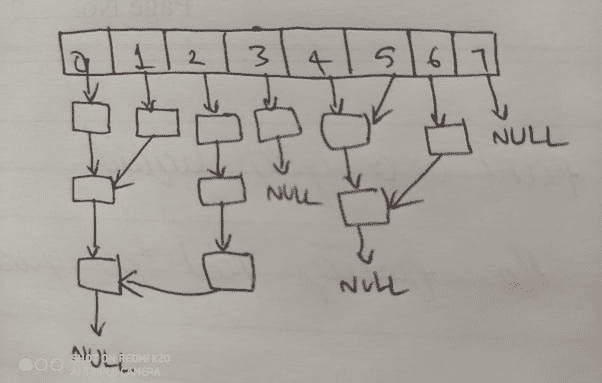 0 1 2 3 4 5 6 7
NULL
NULL
NULL
NULL
SHOT ON REDMI K20
AI TRIPLE CAMERA